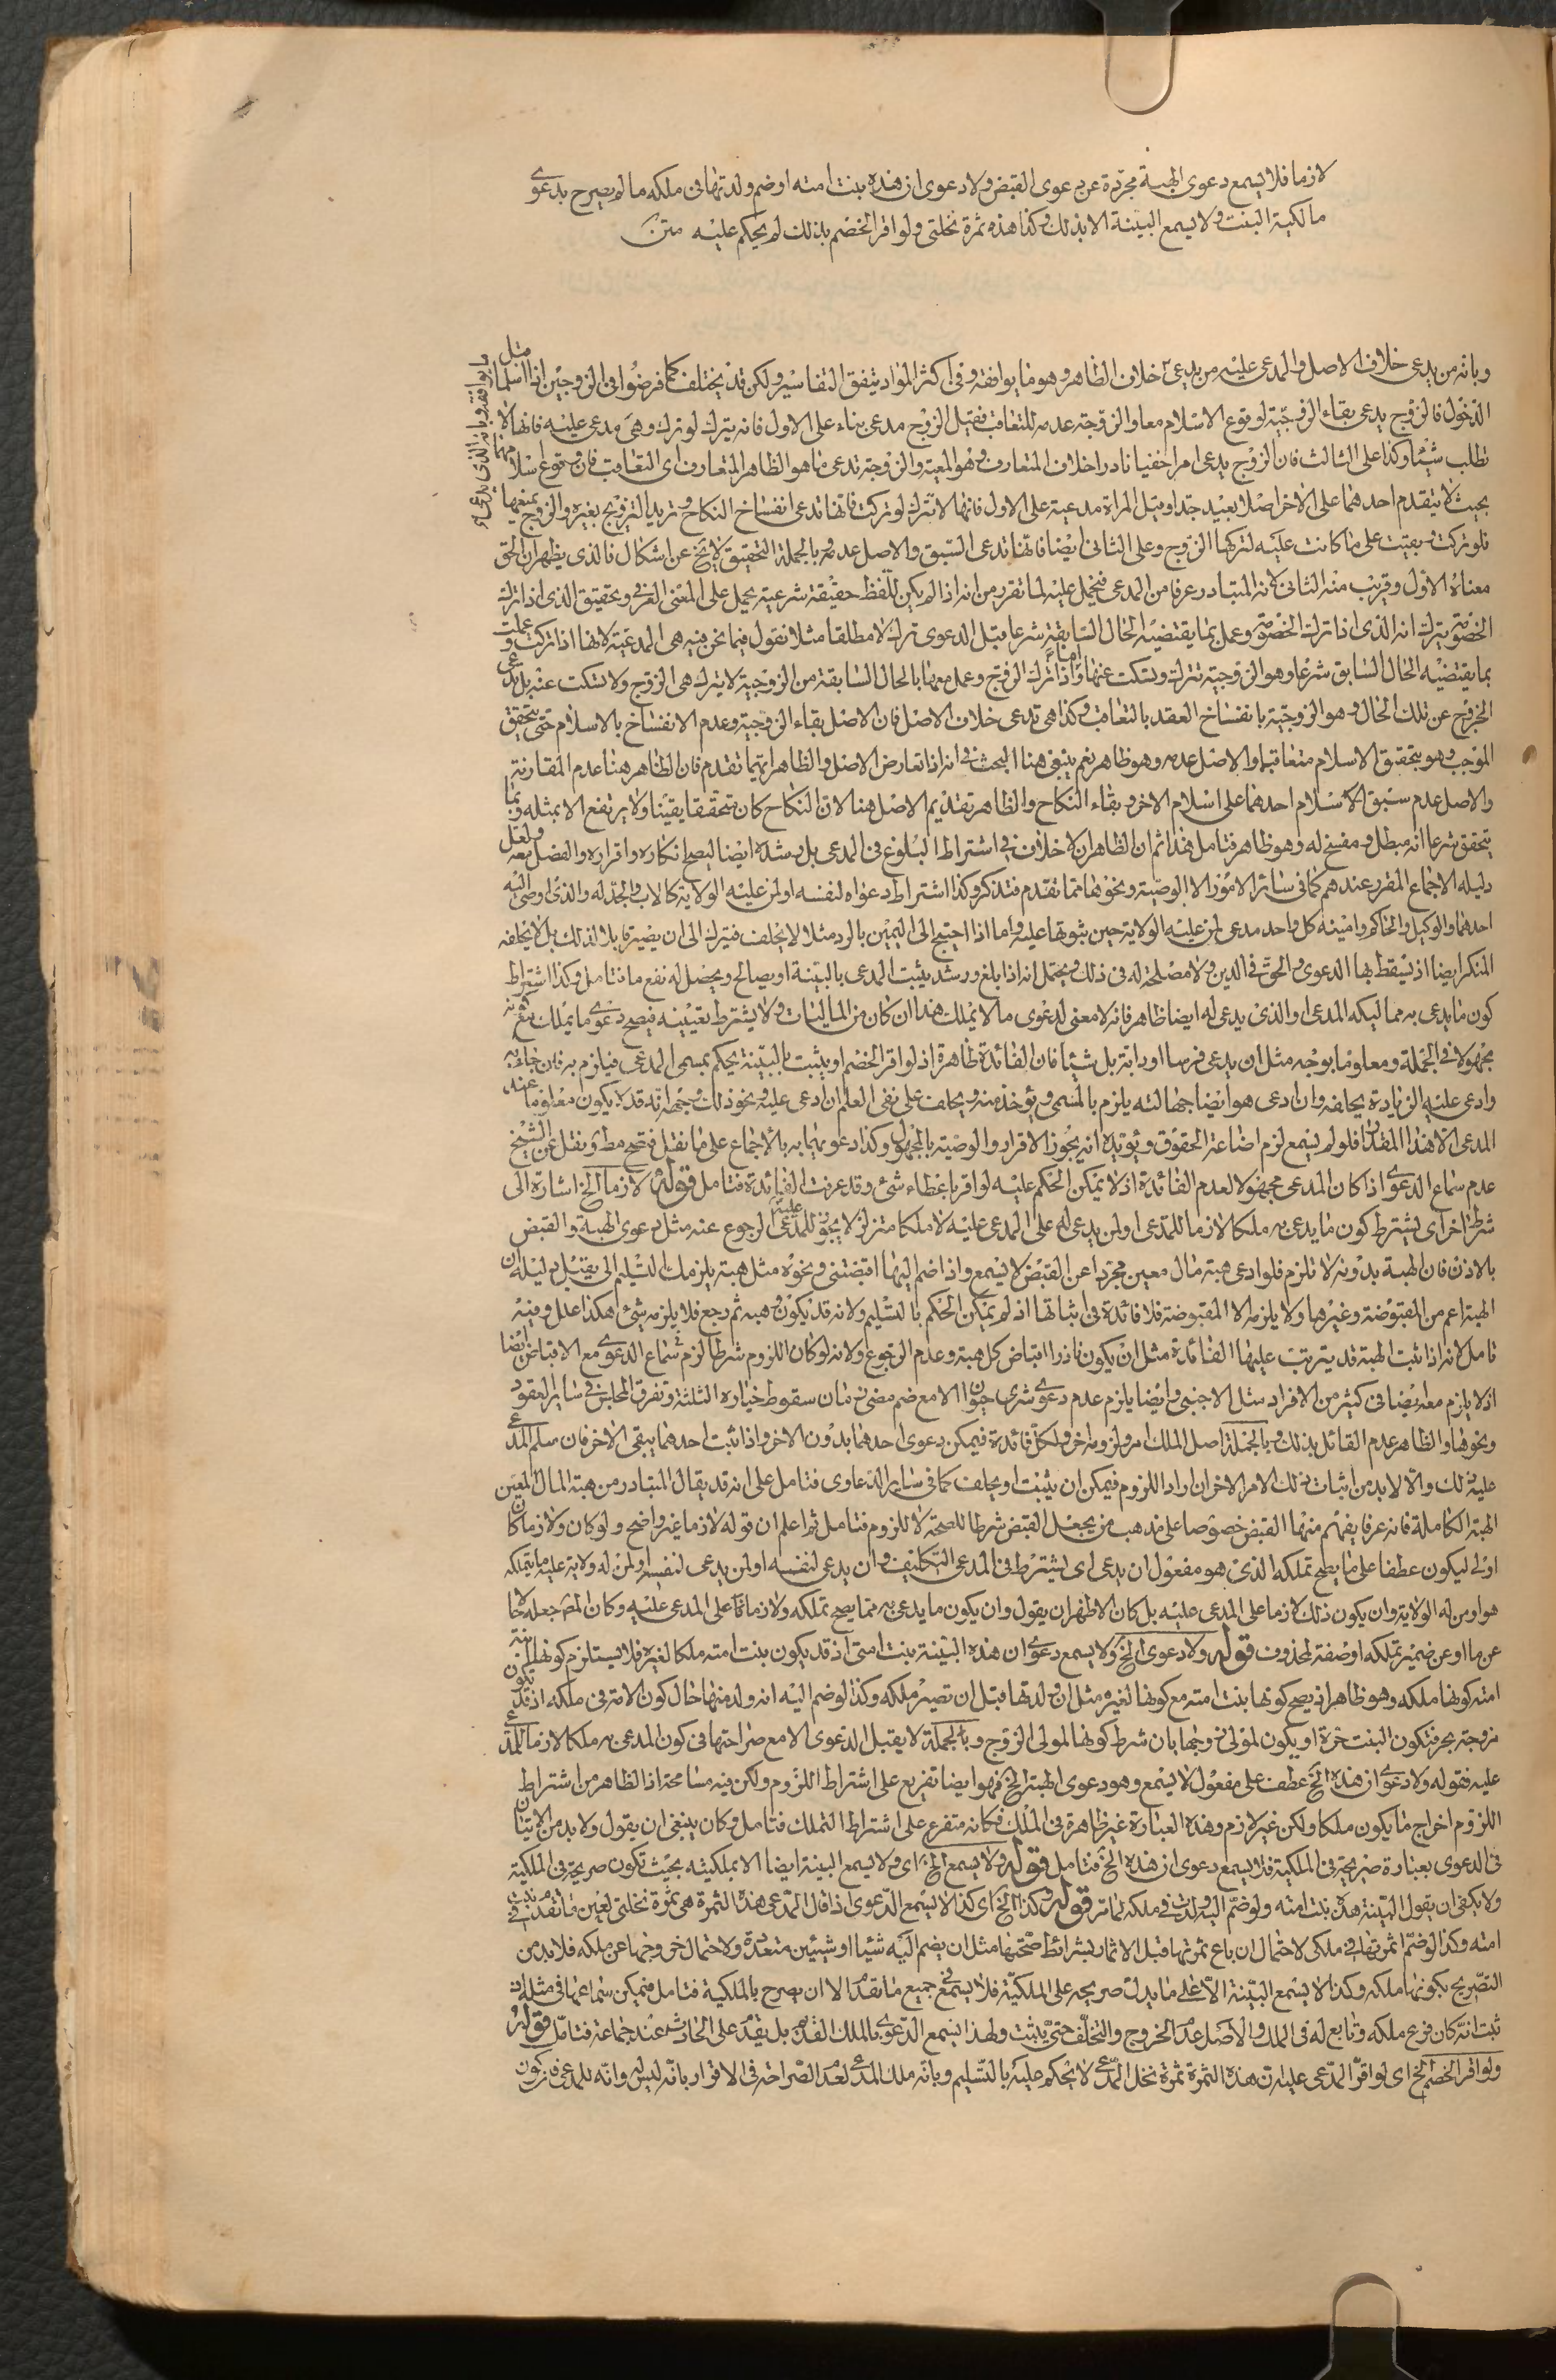 لازما فلا يسمع دعوى الهبة مجردة عن دعوى القبض ولا دعوى ان هذه بنت امته او ضم ولدتها في ملكه ما لم يصرح بدعوى
مالكية البنت ولا يسمع البينة الا بذلك وكذا هذه ثمرة نخلتي ولو اقر الخصم بذلك لم يحكم عليه متن
وبانه من يدعى خلاف الاصل والمدعى عليه من يدعى خلاف الظاهر وهو ما يوافقه وفى اكثر المواد يتفق التفاسير ولكن قد يختلف كما فرضوا فى الزوجين اذا اسلما قبل
الدخول فالزوج يدعى بقاء الزوجية لوقوع الاسلام معا والزوجة عدمه للتعاقب فقيل الزوج مدعى بناء على الاول فانه يترك لو ترك وهى مدعى عليه فانها لا
تطلب شيئا وكذا على الثالث فان الزوج يدعى امرا خفيا نادرا خلاف المتعارف وهو المعية والزوجة تدعى ما هو الظاهر المتعارف اى التعاقب فان وقوع اسلامهما
بحيث لا يتقدم احدهما على الاخر اصلا بعيد جدا وقيل المراة مدعية على الاول فانها لا تترك لو تركت فانها تدعى انفساخ النكاح وتريد التزويج بغيره والزوج يمنعها
فلو تركت بقيت على ما كانت عليه لتركها الزوج وعلى الثانى ايضا فانها تدعى السبق والاصل عدمه وبالجملة التحقيق لا يخ عن اشكال فالذى يظهر ان الحق
معناه الاول وقريب منه الثانى لانه المتبادر عرفا من المدعى فيحمل عليه لما تقرر من انه اذا لم يكن للفظ حقيقة شرعية يحمل على المعنى العرفى وتحقيق الذى اذا ترك
الخصومة يترك انه الذى اذا ترك الخصومة وعمل بما يقتضيه الحال السابقة شرعا قبل الدعوى ترك لا مطلقا مثلا نقول فيما نحن فيه هى المدعية لانها اذا تركت وعملت
بما يقتضيه الحال السابق شرعا وهو الزوجية تترك وتسكت عنها واما اذا ترك الزوج وعمل معها بالحال السابقة من الزوجية لا يترك هى الزوج ولا تسكت عنه بل يدعى
الخروج عن تلك الحال وهو الزوجية بانفساخ العقد بالتعاقب وكذا هى تدعى خلاف الاصل فان الاصل بقاء الزوجية وعدم الانفساخ بالاسلام حتى يتحقق
الموجب وهو بتحقق الاسلام متعاقبا والاصل عدمه وهو ظاهر نعم ينبغى هنا البحث فى انه اذا تعارض الاصل والظاهر ايهما تقدم فان الظاهر هنا عدم المقارنة
والاصل عدم سبق الاسلام احدهما على اسلام الاخر وبقاء النكاح والظاهر تقديم الاصل هنا لان النكاح كان متحققا يقينا ولا يرتفع الا بمثله وبما
يتحقق شرعا انه مبطل ومفسخ له وهو ظاهر فتامل هذا ثم ان الظاهر ان لا خلاف فى اشتراط البلوغ فى المدعى بل رشده ايضا ليصح انكاره واقراره والفصل معه ولعل
دليله الاجماع المقرر عندهم كما فى سائر الامور الا الوصية ونحوها مما تقدم فتذكر وكذا اشتراط دعواه لنفسه او لمن عليه الولاية كالاب والجد له والذى اوصى اليه
احدهما والوكيل والحاكم وامينه كل واحد مدعى لمن عليه الولاية حين ثبوتها عليه واما اذا احتيج الى اليمين بالرد مثلا لا يحلف فيترك الى ان يصير قابلا لذلك بل لا يحلفه
المنكر ايضا اذ يسقط بها الدعوى والحق فى الدين ولا مصلحة له فى ذلك ويحتمل انه اذا بلغ ورشد يثبت المدعى بالبينة او يصالح ويحصل له نفع ما فتامل وكذا اشتراط
كون ما يدعى به مما يملكه المدعى او الذى يدعى له ايضا ظاهر فانه لا معنى لدعوى ما لا يملك هذا ان كان من الماليات ولا يشترط تعيينه فيصح دعوى ما يملك مع كونه
مجهولا فى الجملة ومعلوما بوجه مثل ان يدعى فرسا او دابة بل شيئا فان الفائدة ظاهرة اذ لو اقر الخصم او يثبت بالبينة يحكم بمسمى المدعى فيلزم به فان جاء به
وادعى عليه الزيادة يحلفه وان ادعى هو ايضا جهالته يلزم بالمسمى ويؤخذ منه ويحلف على نفى العلم ان ادعى عليه ونحو ذلك وجهه انه قد لا يكون معلوما عند
المدعى الا هذا المقدار فلو لم يسمع لزم اضاعة الحقوق ويؤيده انه يجوز الاقرار والوصية بالمجهول وكذا دعويهما به بالاجماع على ما نقل فتصح مط ونقل عن الشيخ
عدم سماع الدعوى اذا كان المدعى مجهولا لعدم الفائدة اذ لا يمكن الحكم عليه لو اقر باعطاء شئ وقد عرفت الفائدة فتامل قوله لازما الخ اشارة الى
شرط اخر اى يشترط كون ما يدعى به ملكا لازما للمدعى او لمن يدعى له على المدعى عليه لا ملكا متزلزلا يجوز للمدعى عليه الرجوع عنه مثل دعوى الهبة والقبض
بالاذن فان الهبة بدونه لا تلزم فلو ادعى هبة مال معين مجردا عن القبض لا يسمع واذا ضم اليها اقبضتنى ونحوه مثل هبة يلزمك التسليم الى يقبل دليله ان
الهبة اعم من المقبوضة وغيرها ولا يلزمه الا المقبوضة فلا فائدة فى اثباتها اذ لم يمكن الحكم بالتسليم ولانه قد يكون وهبه ثم رجع فلا يلزمه شئ هكذا علل وفيه
تامل لانه اذا ثبت الهبة قد يترتب عليها الفائدة مثل ان يكون ناذرا اقباض كل هبة وعدم الرجوع ولانه لو كان اللزوم شرطا لزم سماع الدعوى مع الاقباض ايضا
اذ لا يلزم معه ايضا فى كثير من الافراد مثل الاجنبى وايضا يلزم عدم دعوى شرى حيوان الا مع ضم مضى زمان سقوط خياره الثلثة وتفرق المجلس فى سائر العقود
ونحوها والظاهر عدم القائل بذلك وبالجملة اصل الملك امر ولزومه اخر ولكل فائدة فيمكن دعوى احدهما بدون الاخر واذا ثبت احدهما يبقى الاخر فان سلم المدعى
عليه ذلك والا لا بد من اثبات ذلك الامر الاخر ان اراد اللزوم فيمكن ان يثبت او يحلف كما فى سائر الدعاوى فتامل على انه قد يقال المتبادر من هبة المال المعين
الهبة الكاملة فانه عرفا يفهم منها القبض خصوصا على مذهب من يجعل القبض شرطا للصحة لا للزوم فتامل ثم اعلم ان قوله لازما غير واضح ولو كان ولازما كان
اولى ليكون عطفا على ما يصح تملكه الذى هو مفعول ان يدعى اى يشترط فى المدعى التكليف وان يدعى لنفسه او لمن يدعى لنفسه او لمن له ولاية عليه ما يتملكه
هو او من له الولاية وان يكون ذلك لازما على المدعى عليه بل كان الاظهر ان يقول وان يكون ما يدعى به مما يصح تملكه ولازما على المدعى عليه وكان المص جعله حالا
عن ما او عن ضمير تملكه او صفة لمحذوف قوله ولا دعوى الخ ولا يسمع دعوى ان هذه البنت بنت امتى اذ قد يكون بنت امته ملكا لغيره فلا يستلزم كونها ابنة
امته كونها ملكه وهو ظاهر اذ يصح كونها بنت امته مع كونها لغيره مثل ان ولدتها قبل ان تصير ملكه وكذا لو ضم اليه انه ولد منها حال كون الامة فى ملكه اذ قد يكون
مزوجة بحر فتكون البنت حرة او يكون لمولى زوجها بان شرط كونها لمولى الزوج وبالجملة لا يقبل الدعوى الا مع صراحتها فى كون المدعى به ملكا لازما للمدعى
عليه فقوله ولا دعوى ان هذه الخ عطف على مفعول لا يسمع وهو دعوى الهبة الخ فهو ايضا تفريع على اشتراط اللزوم ولكن فيه مسامحة اذ الظاهر من اشتراط
اللزوم اخراج ما يكون ملكا ولكن غير لازم وهذه العبارة غير ظاهرة فى الملك فكانه متفرع على اشتراط التملك فتامل وكان ينبغى ان يقول ولا بد من الاتيان
فى الدعوى بعبارة صريحة فى الملكية فلا يسمع دعوى ان هذه الخ فتامل قوله ولا يسمع الخ اى ولا يسمع البينة ايضا الا بملكيته بحيث تكون صريحة فى الملكية
ولا يكفى ان يقول البينة هذه بنت امته ولو ضم اليه ولدت فى ملكه لما مر قوله وكذا الخ اى كذا لا يسمع الدعوى اذا قال المدعى هذه الثمرة هى ثمرة نخلتى لعين ما تقدم فى بنت
امته وكذا لو ضم اثمرتها فى ملكى لاحتمال ان باع ثمرتها قبل الاثمار بشرائط صحتها مثل ان يضم اليه شيئا او شيئين متعددة ولاحتمال خروجها عن ملكه فلا بد من
التصريح بكونها ملكه وكذا لا يسمع البينة الا على ما يدل صريحه على الملكية فلا يسمع فى جميع ما تقدم الا ان يصرح بالملكية فتامل فيمكن سماعها فى مثله اذ
ثبت انه كان فرع ملكه وتابع له فى الملك والاصل عدم الخروج والتخلف حتى يثبت ولهذا يسمع الدعوى بالملك القديم بل يقدم على الحادث عند جماعة فتامل قوله
ولو اقر الخصم الخ اى لو اقر المدعى عليه ان هذه الثمرة ثمرة نخل المدعى لا يحكم عليه بالتسليم وبانه ملك المدعى لعدم الصراحة فى الاقرار بانه ليس له وانه للمدعى فان كون
ما يوافقه وبانه الذى يدعى